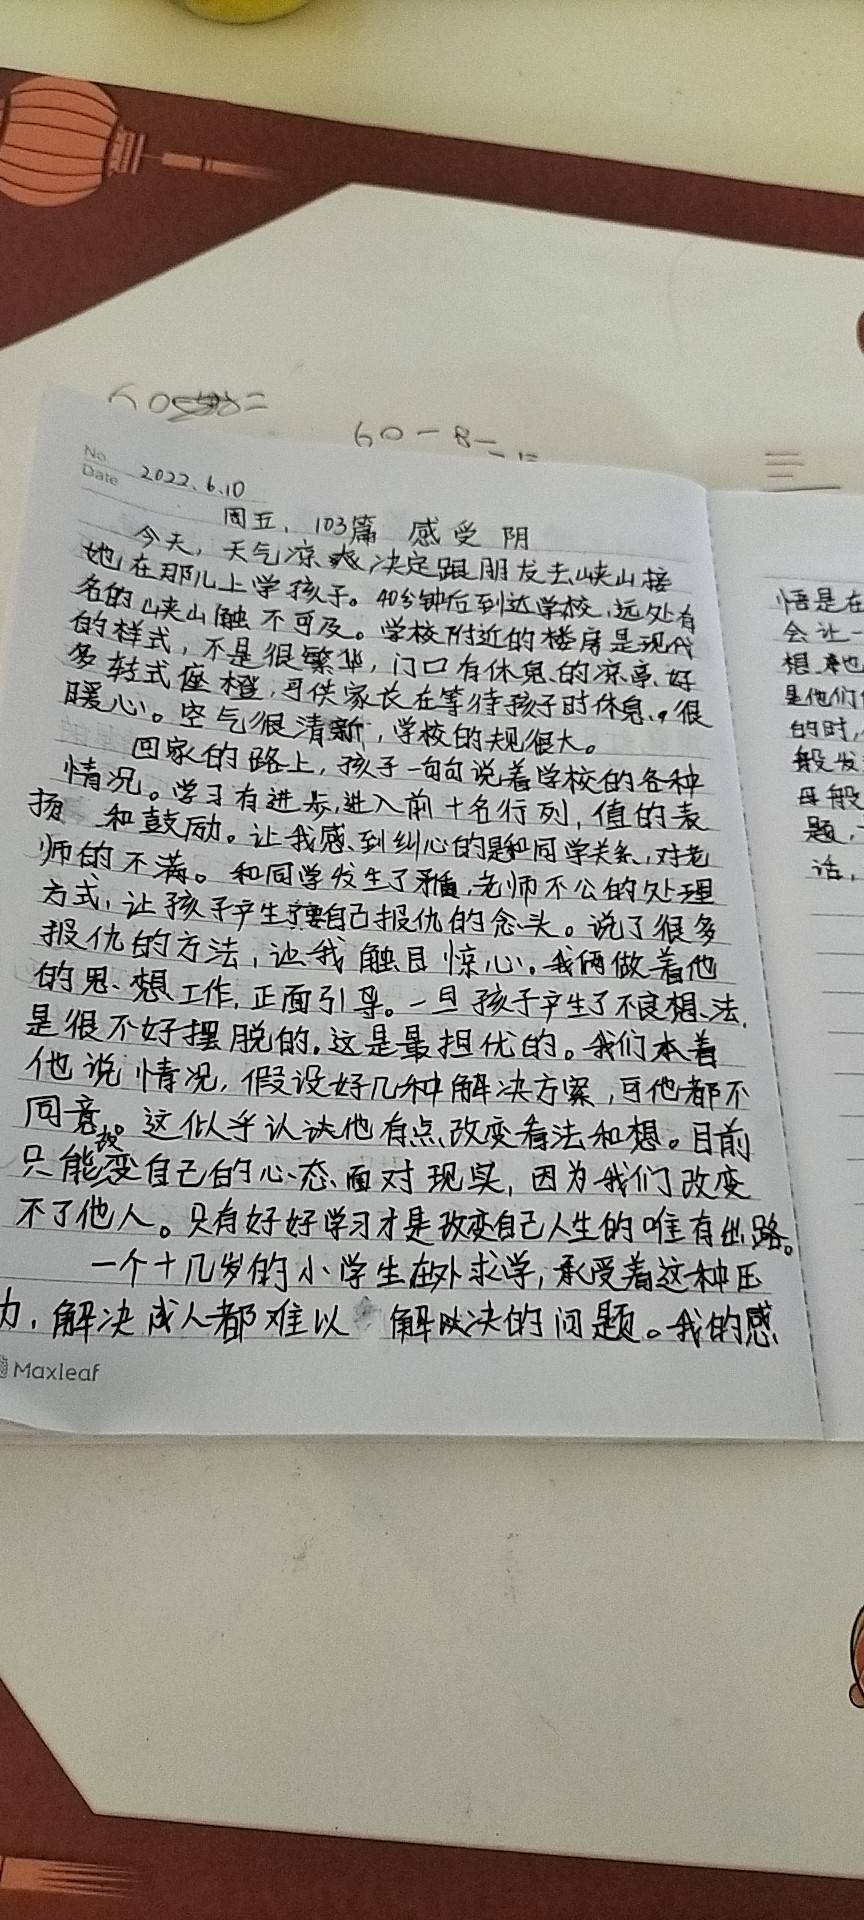 60-8=
No.
Date 2022.6.10
周五, 103篇 感受 阴
今天,天气凉爽,决定跟朋友去峡山接
她在那儿上学孩子。40分钟后到达学校,远处有
名的峡山触不可及。学校附近的楼房是现代
的样式,不是很繁华,门口有休息的凉亭、好
多转式座橙,可供家长在等待孩子时休息,很
暖心。空气很清新,学校的规很大。
回家的路上,孩子一句句说着学校的各种
情况。学习有进步,进入前十名行列,值的表
扬 和鼓励。让我感到纠心的是和同学关系,对老
师的不满。和同学发生了矛盾,老师不公的处理
方式,让孩子产生了要自己报仇的念头。说了很多
报仇的方法,让我触目惊心。我俩做着他
的思想工作,正面引导。一旦孩子产生了不良想法,
是很不好摆脱的。这是最担优的。我们本着
他说情况,假设好几种解决方案,可他都不
同意。这似乎认决他有点改变看法和想。目前
只能改变自己的心态、面对现实,因为我们改变
不了他人。只有好好学习才是改变自己人生的唯有出路。
一个十几岁的小学生在外求学,承受着这种压
力,解决成人都难以 解决的问题。我的感
Maxleaf
悟是在
会让一
想,来也
是他们
的时,
般发
母般
题,
话,